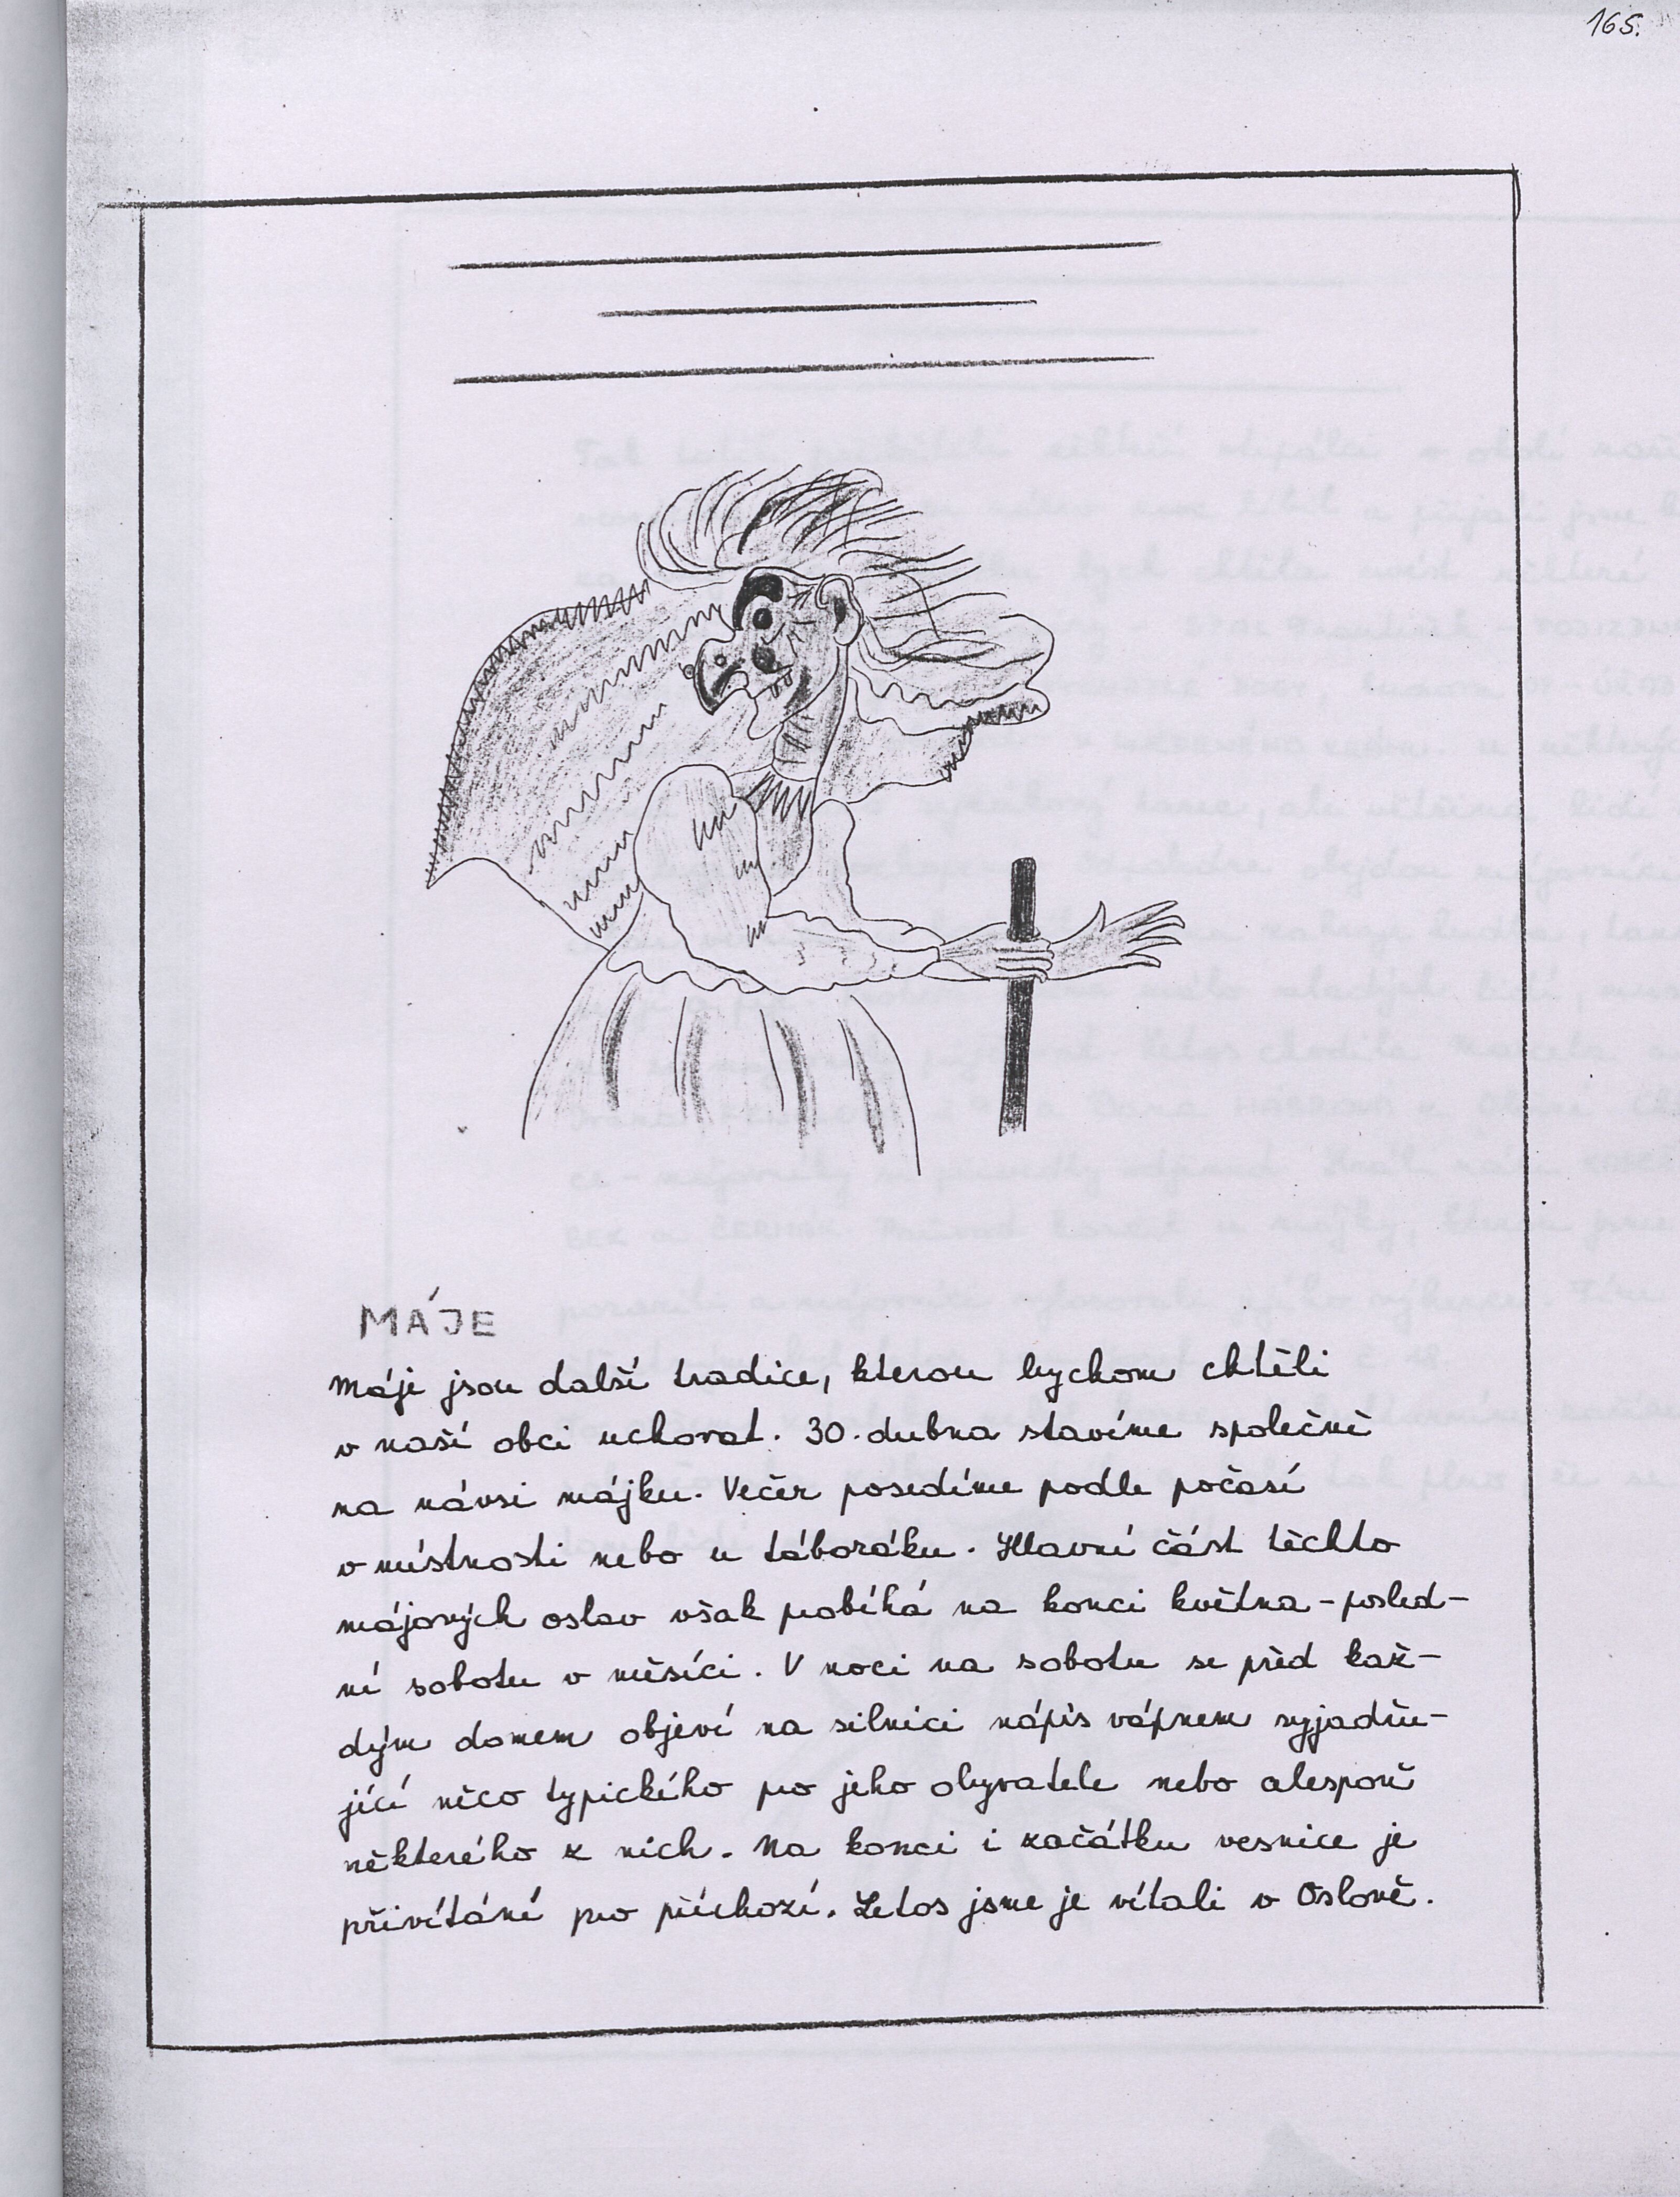 165.
MÁJE
Máje jsou další tradice, kterou bychom chtěli
v naší obci uchovat. 30. dubna stavíme společně
na návsi májku. Večer posedíme podle počasí
v místnosti nebo u táboráku. Hlavní část těchto
májových oslav však probíhá na konci května - posled-
ní sobotu v měsíci. V noci na sobotu se před kaž-
dým domem objeví na silnici nápis vápnem vyjadřu-
jící něco typického pro jeho obyvatele nebo alespoň
některého z nich. Na konci i začátku vesnice je
přivítání pro příchozí. Letos jsme je vítali v Oslově.